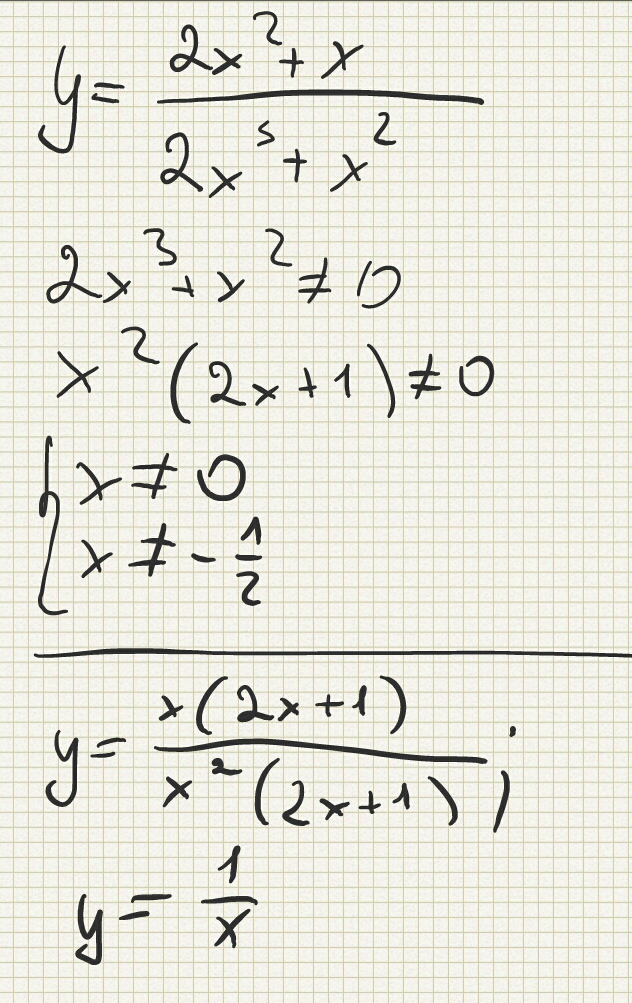 y = (2x² + x) / (2x³ + x²)
2x³ + x² ≠ 0
x²(2x+1) ≠ 0
{ x ≠ 0
x ≠ - 1/2
y = x(2x+1) / x²(2x+1) ;
y = 1/x